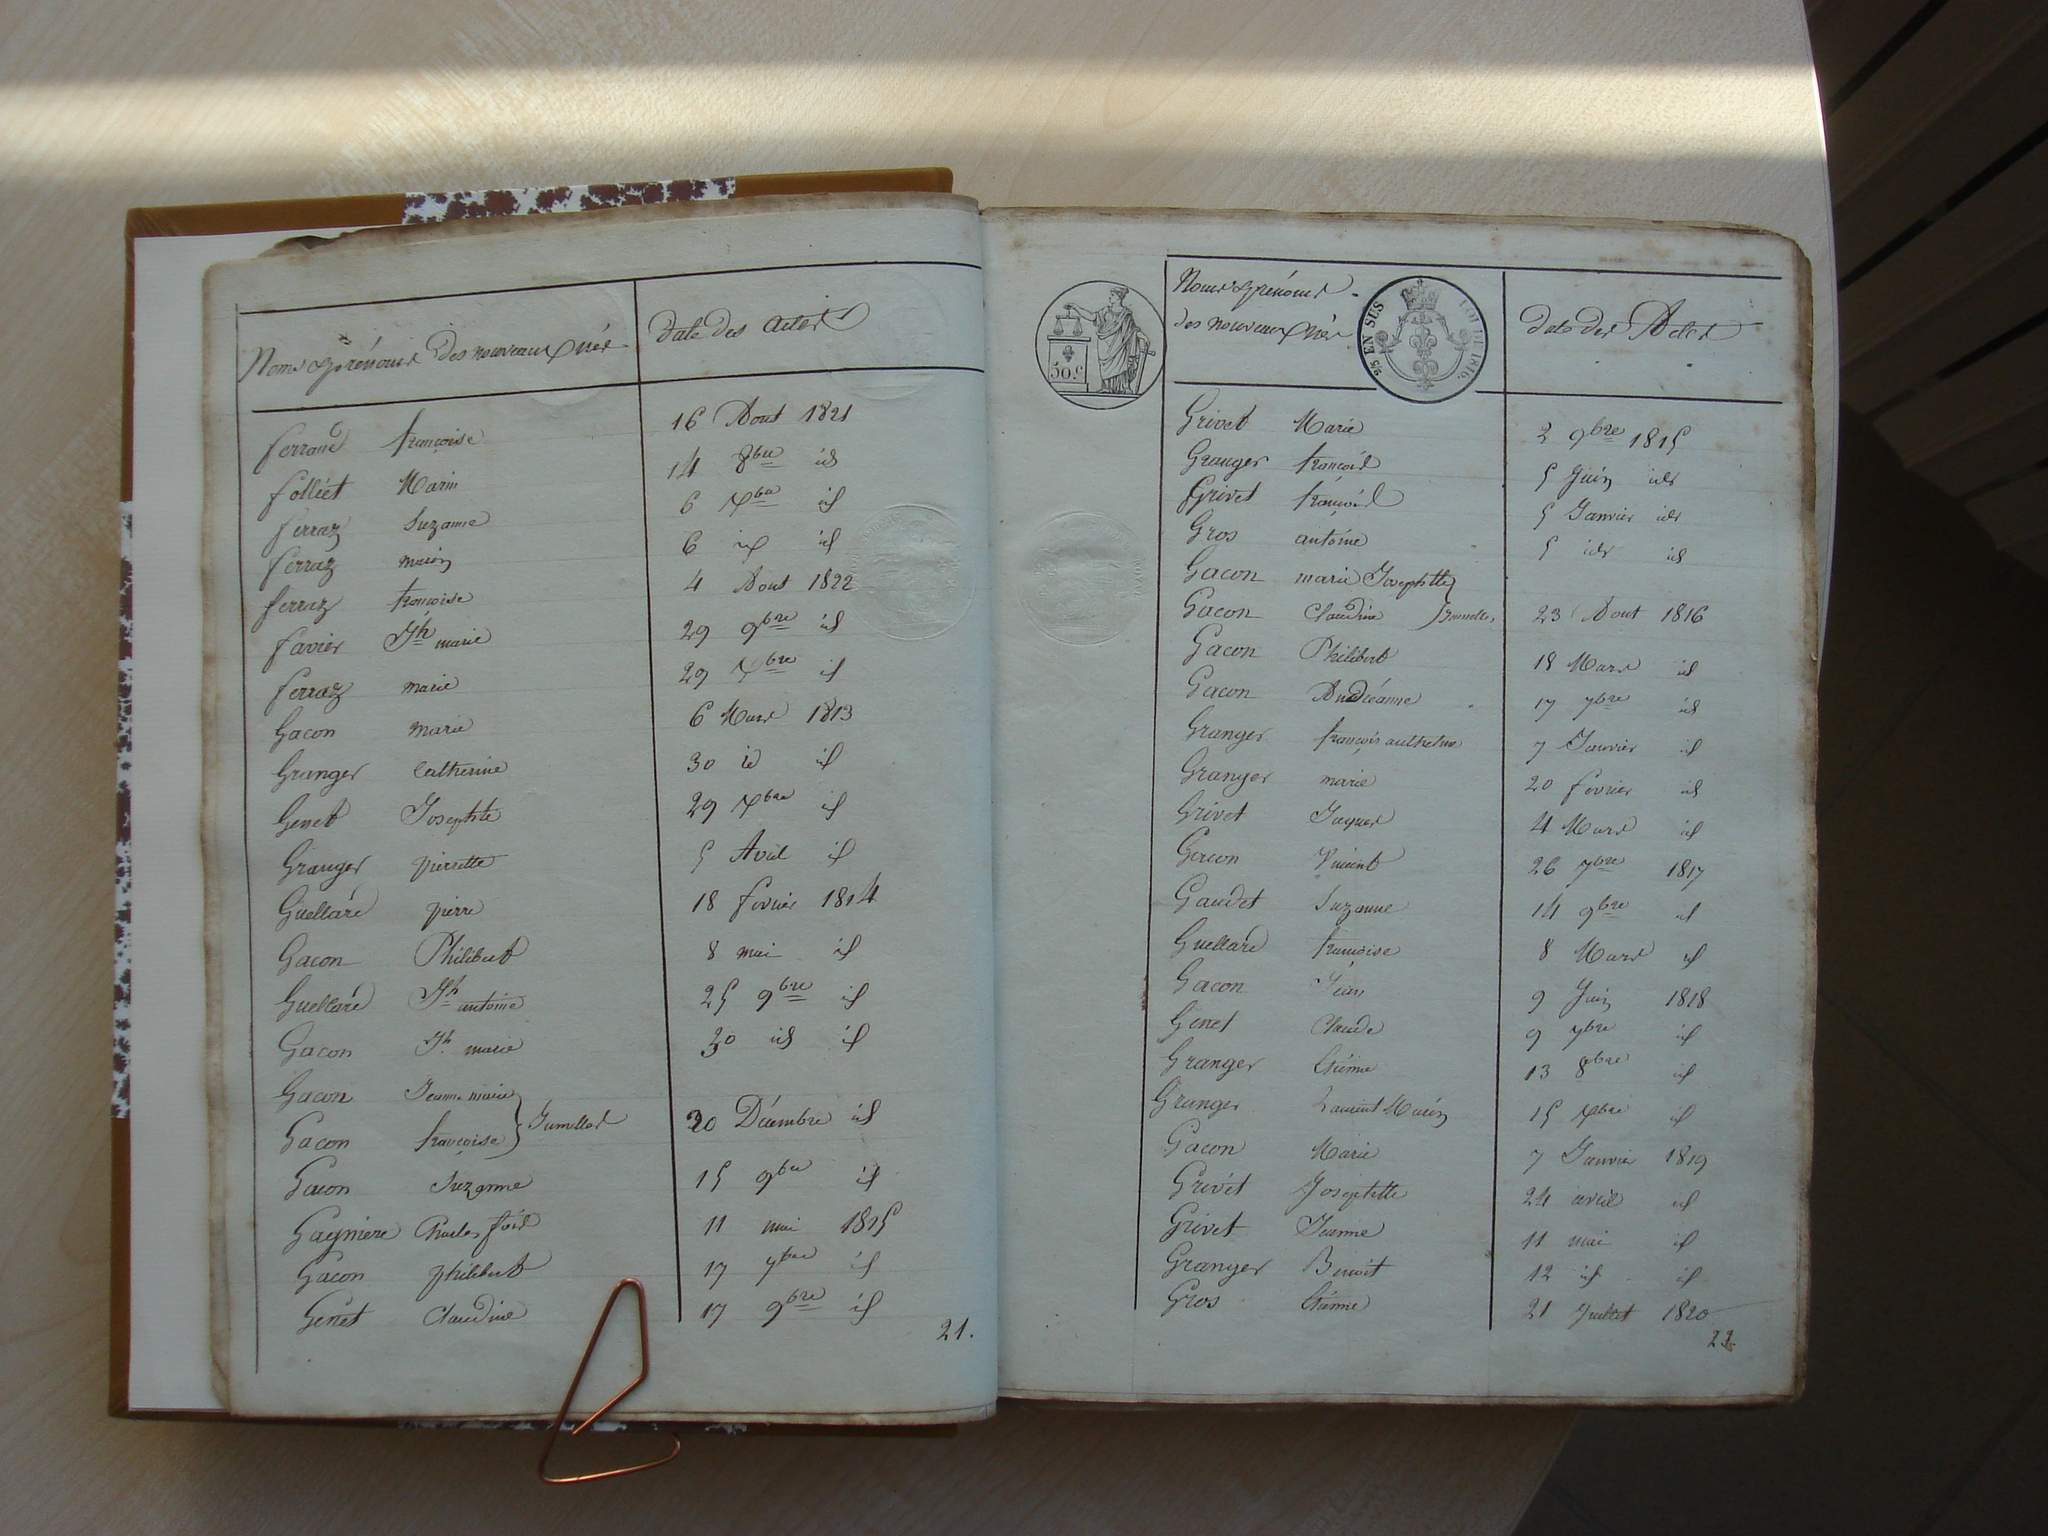 Noms & prénoms des nouveaux nés date des actes
Ferroud françoise 16 Aout 1821
Folliet Marie 14 8bre id
Ferraz Suzanne 6 Xbre id
Ferraz marie 6 id id
Ferraz françoise 4 Aout 1822
Favier Jh marie 29 9bre id
Ferraz marie 29 Xbre id
Gacon marie 6 Mars 1813
Granger Catherine 30 id id
Genet Josephte 29 Xbre id
Granger pierrette 5 Avril id
Guellaré pierre 18 fevrier 1814
Gacon Philibert 8 mai id
Guellaré Jh antoine 25 9bre id
Gacon Jh marie 30 id id
Gacon Jeanne marie
Gacon françoise } Jumelles 30 Décembre id
Gacon Suzanne 15 9bre id
Gagniere Charles fois 11 mai 1815
Gacon philibert 17 7bre id
Genet Claudine 17 9bre id
21.
50c.
Noms & prénoms
des nouveaux nés
25 EN SUS
LOI DE 1816.
date des Actes
Grivet Marie 2 9bre 1815
Granger françois 5 Juin id
Grivet françois 5 Janvier id
Gros antoine 5 id id
Gacon marie Josephte
Gacon Claudine } Jumelles 23 Aout 1816
Gacon Philibert 18 Mars id
Gacon Andréanne 17 7bre id
Granger françois anthelme 7 Janvier id
Granger marie 20 fevrier id
Grivet Jaques 4 Mars id
Gacon Vincent 26 7bre 1817
Gaudet Suzanne 14 9bre id
Guellaré françoise 8 Mars id
Gacon Jean 9 Juin 1818
Genet Claude 9 7bre id
Granger Etienne 13 8bre id
Granger Laurent Marin 15 Xbre id
Gacon Marie 7 Janvier 1819
Grivet Josephtte 24 avril id
Grivet Jeanne 11 mai id
Granger Benoit 12 id id
Gros Etienne 21 Juillet 1820
22